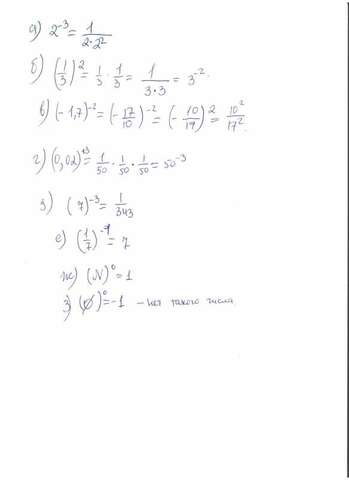 а) 2⁻³ = 1/(2·2²)
б) (1/3)² = 1/3 · 1/3 = 1/(3·3) = 3⁻².
в) (-1,7)⁻² = (-17/10)⁻² = (-10/19)² = 10²/17²
г) (0,02)⁺³ = 1/50 · 1/50 · 1/50 = 50⁻³
з) (7)⁻³ = 1/343
е) (1/7)⁻¹ = 7
ж) (N)⁰ = 1
з) (∅)⁰ = -1 - нет такого числа